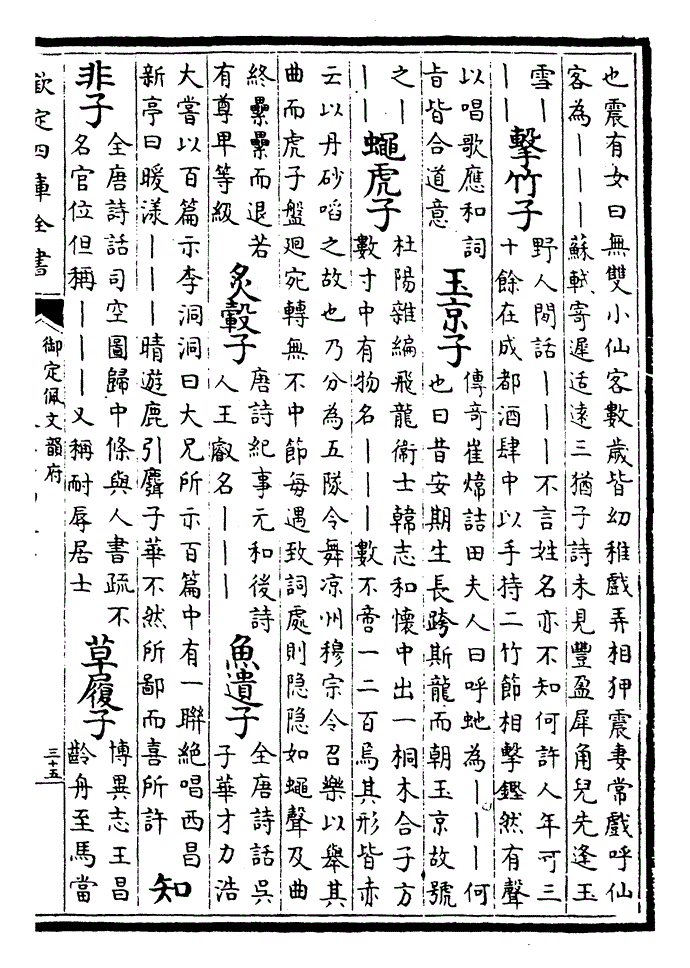 也震有女曰無雙小仙客數歲皆幼稚戲弄相狎震妻常戲呼仙
客為｜｜｜蘇軾寄遲适遠三猶子詩未見豐盈犀角兒先逢玉
雪｜
｜｜
擊竹子
野人閒話｜｜｜不言姓名亦不知何許人年可三
十餘在成都酒肆中以手持二竹節相擊鏗然有聲
以唱歌應和詞
旨皆合道意
玉京子
傳奇崔煒詰田夫人曰呼虵為｜｜｜何
也曰昔安期生長跨斯龍而朝玉京故號
之｜
｜｜
蠅虎子
杜陽雜編飛龍衛士韓志和懷中出一桐木合子方
數寸中有物名｜｜｜數不啻一二百焉其形皆赤
云以丹砂啗之故也乃分為五隊令舞凉州穆宗令召樂以舉其
曲而虎子盤迴宛轉無不中節每遇致詞處則隠隠如蠅聲及曲
終纍纍而退若
有尊卑等級
炙轂子
唐詩紀事元和後詩
人王叡名｜｜｜
魚遺子
全唐詩話吳
子華才力浩
大嘗以百篇示李洞洞曰大兄所示百篇中有一聯絶唱西昌
新亭曰暖漾｜｜｜晴遊鹿引麛子華不然所鄙而喜所許
知
非子
全唐詩話司空圖歸中條與人書疏不
名官位但稱｜｜｜又稱耐辱居士
草履子
博異志王昌
齡舟至馬當
欽定四庫全書
御定佩文韻府
三十五